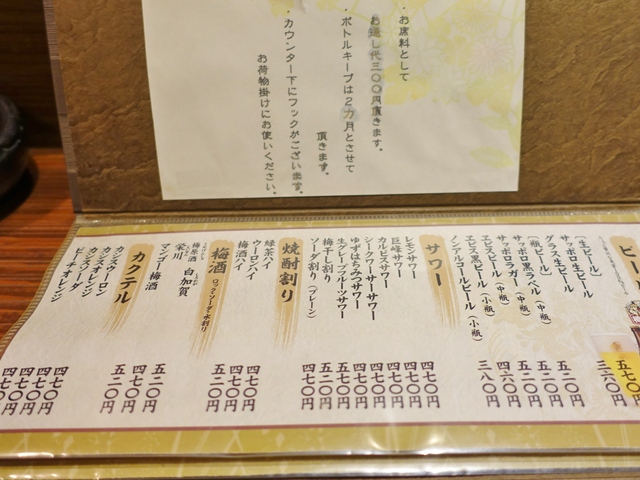 ・お席料として
お通し代三〇〇円頂きます。
・ボトルキープは2カ月とさせて
頂きます。
・カウンター下にフックがございます。
お荷物掛けにお使いください。
〔生ビール〕
サッポロ生ビール
五二〇円
グラス生ビール
〔瓶ビール〕
サッポロ黒ラベル（中瓶）
五二〇円
サッポロラガー（中瓶）
五二〇円
ヱビスビール（中瓶）
ヱビス黒ビール（小瓶）
四六〇円
ノンアルコールビール（小瓶）
三八〇円
サワー
レモンサワー
四七〇円
巨峰サワー
四七〇円
カルピスサワー
四七〇円
シークワーサーサワー
四七〇円
ゆずはちみつサワー
四七〇円
生グレープフルーツサワー
五七〇円
梅干し割り
五二〇円
ソーダ割り（プレーン）
四七〇円
焼酎割り
緑茶ハイ
ウーロンハイ
四七〇円
梅酒ハイ
四七〇円
梅酒 ロック・ソーダ・水割り
梅原酒 白加賀
栄川
マンゴー梅酒
五二〇円
四七〇円
五二〇円
カクテル
カシスウーロン
四七〇円
カシスオレンジ
四七〇円
カシスソーダ
四七〇円
ピーチオレンジ
四七〇円